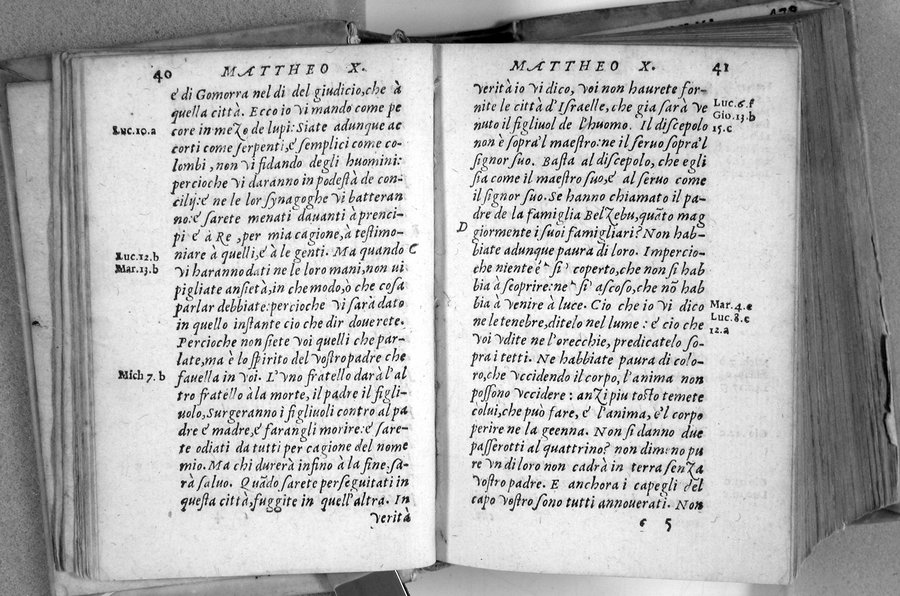 40 MATTHEO X.
é di Gomorra nel dì del giudicio, che à
quella città. Ecco io vi mando come pe
Luc.10.a core in mezo de lupi: Siate adunque ac
corti come serpenti, é semplici come co-
lombi, non vi fidando degli huomini:
percioche vi daranno in podestà de con-
cilij: é ne le lor synagoghe vi batteran
no: é sarete menati dauanti à prenci-
pi é à Re, per mia cagione, à testimo-
Luc.12.b niare à quelli, é à le genti. Ma quando C
Mar.13.b vi haranno dati ne le loro mani, non ui
pigliate ansietà, in che modo, ò che cosa
parlar debbiate: percioche vi sarà dato
in quello instante cio che dir douerete.
Percioche non siete voi quelli che par-
late, ma è lo spirito del vostro padre che
Mich 7.b fauella in voi. L'vno fratello darà l'al
tro fratello à la morte, il padre il figli-
uolo, Surgeranno i figliuoli contro al pa
dre é madre, é farangli morire: é sare-
te odiati da tutti per cagione del nome
mio. Ma chi durerà infino à la fine, sa-
rà saluo. Quãdo sarete perseguitati in
questa città, fuggite in quell'altra. In
verità
MATTHEO X. 41
verità io vi dico, voi non haurete for-
nite le città d'Israelle, che gia sarà ve Luc.6.f
nuto il figliuol de l'huomo. Il discepolo Gio.13.b
non è sopra'l maestro: ne il seruo sopra'l 15.c
signor suo. Basta al discepolo, che egli
sia come il maestro suo, é al seruo come
il signor suo. Se hanno chiamato il pa-
dre de la famiglia Belzebu, quãto mag
D giormente i suoi famigliari? Non hab-
biate adunque paura di loro. Impercio-
che niente è sì coperto, che non si hab
bia à scoprire: ne sì ascoso, che nõ hab
bia à venire à luce. Cio che io vi dico Mar.4.c
ne le tenebre, ditelo nel lume: é cio che Luc.8.c
voi vdite ne l'orecchie, predicatelo so- 12.a
pra i tetti. Ne habbiate paura di colo-
ro, che vccidendo il corpo, l'anima non
possono vccidere: anzi piu tosto temete
colui, che può fare, é l'anima, é'l corpo
perire ne la geenna. Non si danno due
passerotti al quattrino? non dimeno pu
re vn di loro non cadrà in terra senza
vostro padre. E anchora i capegli del
capo vostro sono tutti annouerati. Non
c 5